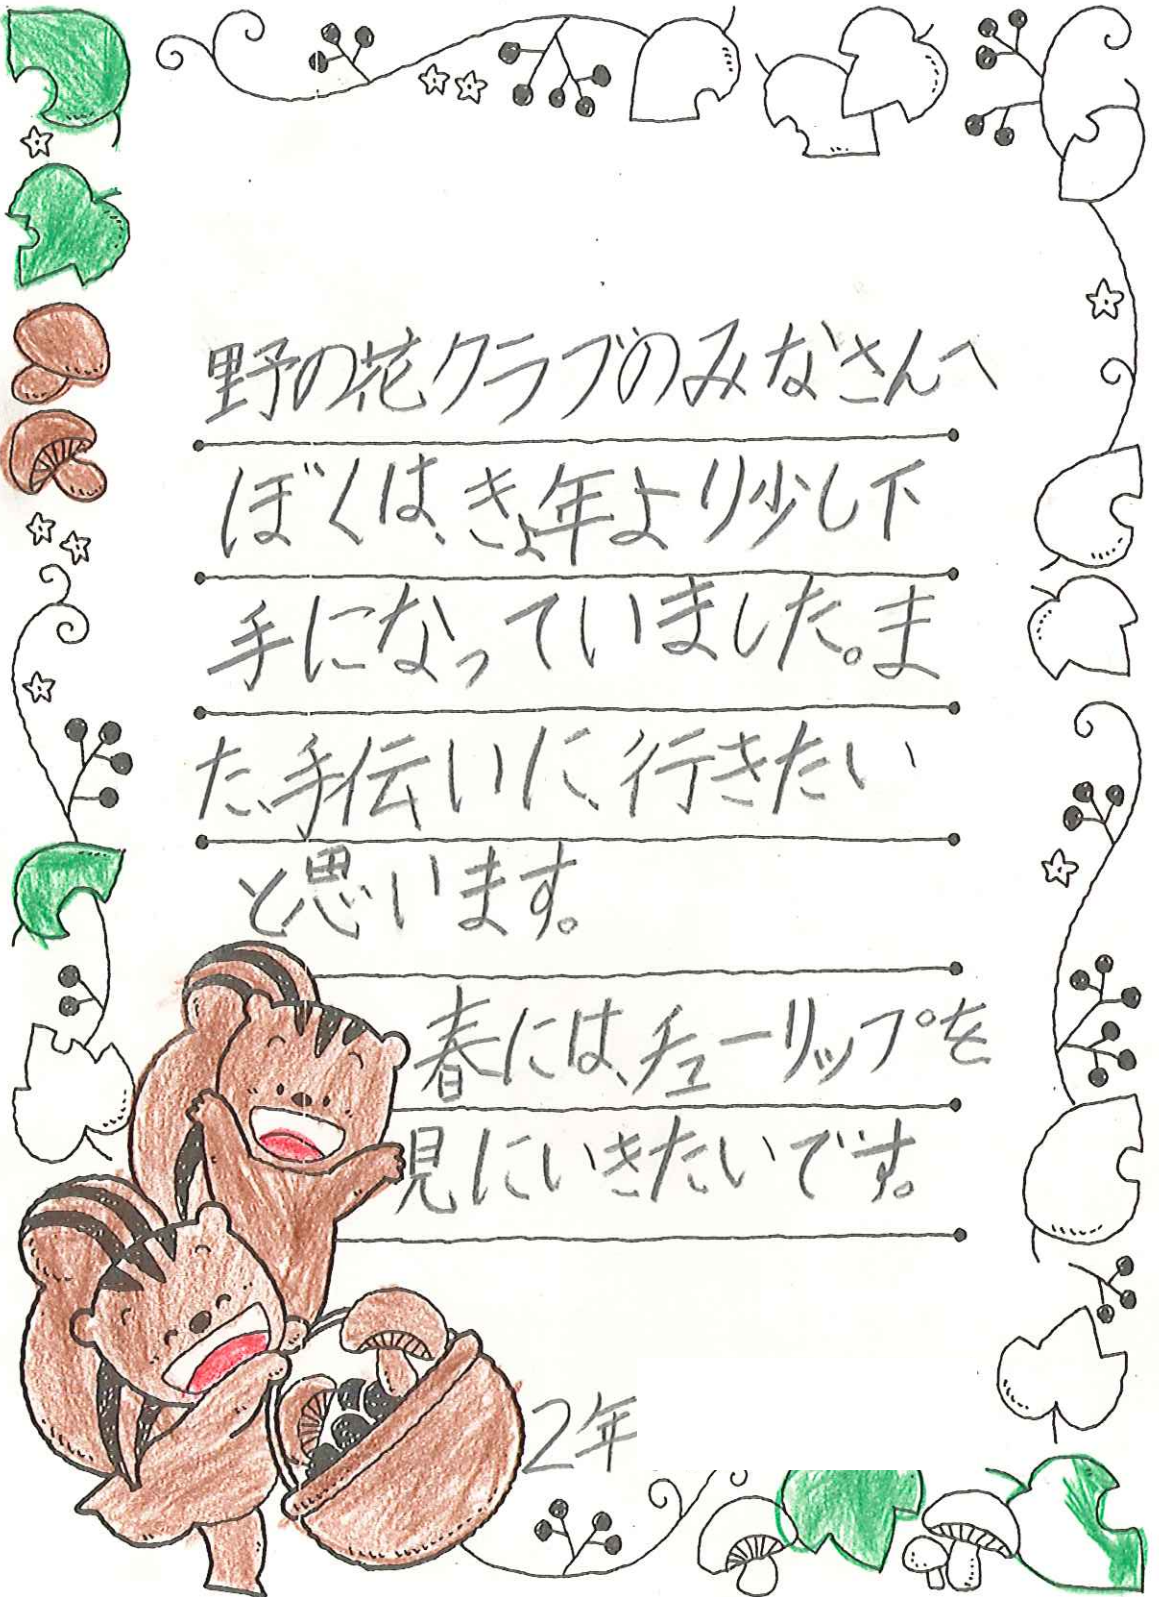 野の花クラブのみなさんへ
ぼくは、きょ年より少し下
手になっていました。ま
た、手伝いに、行きたい
と思います。
春には、チューリップを
見にいきたいです。
2年